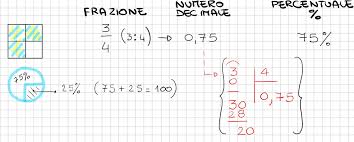 FRAZIONE NUMERO DECIMALE PERCENTUALE %
3/4 (3:4) → 0,75 75%
75%
→ 25% (75+25=100)
3 4
0 0,75
30
28
20